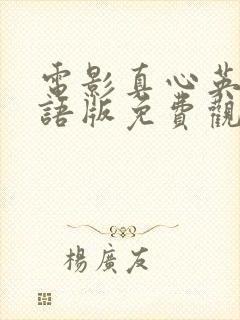 電影真心英
語版免費觀
楊廣友